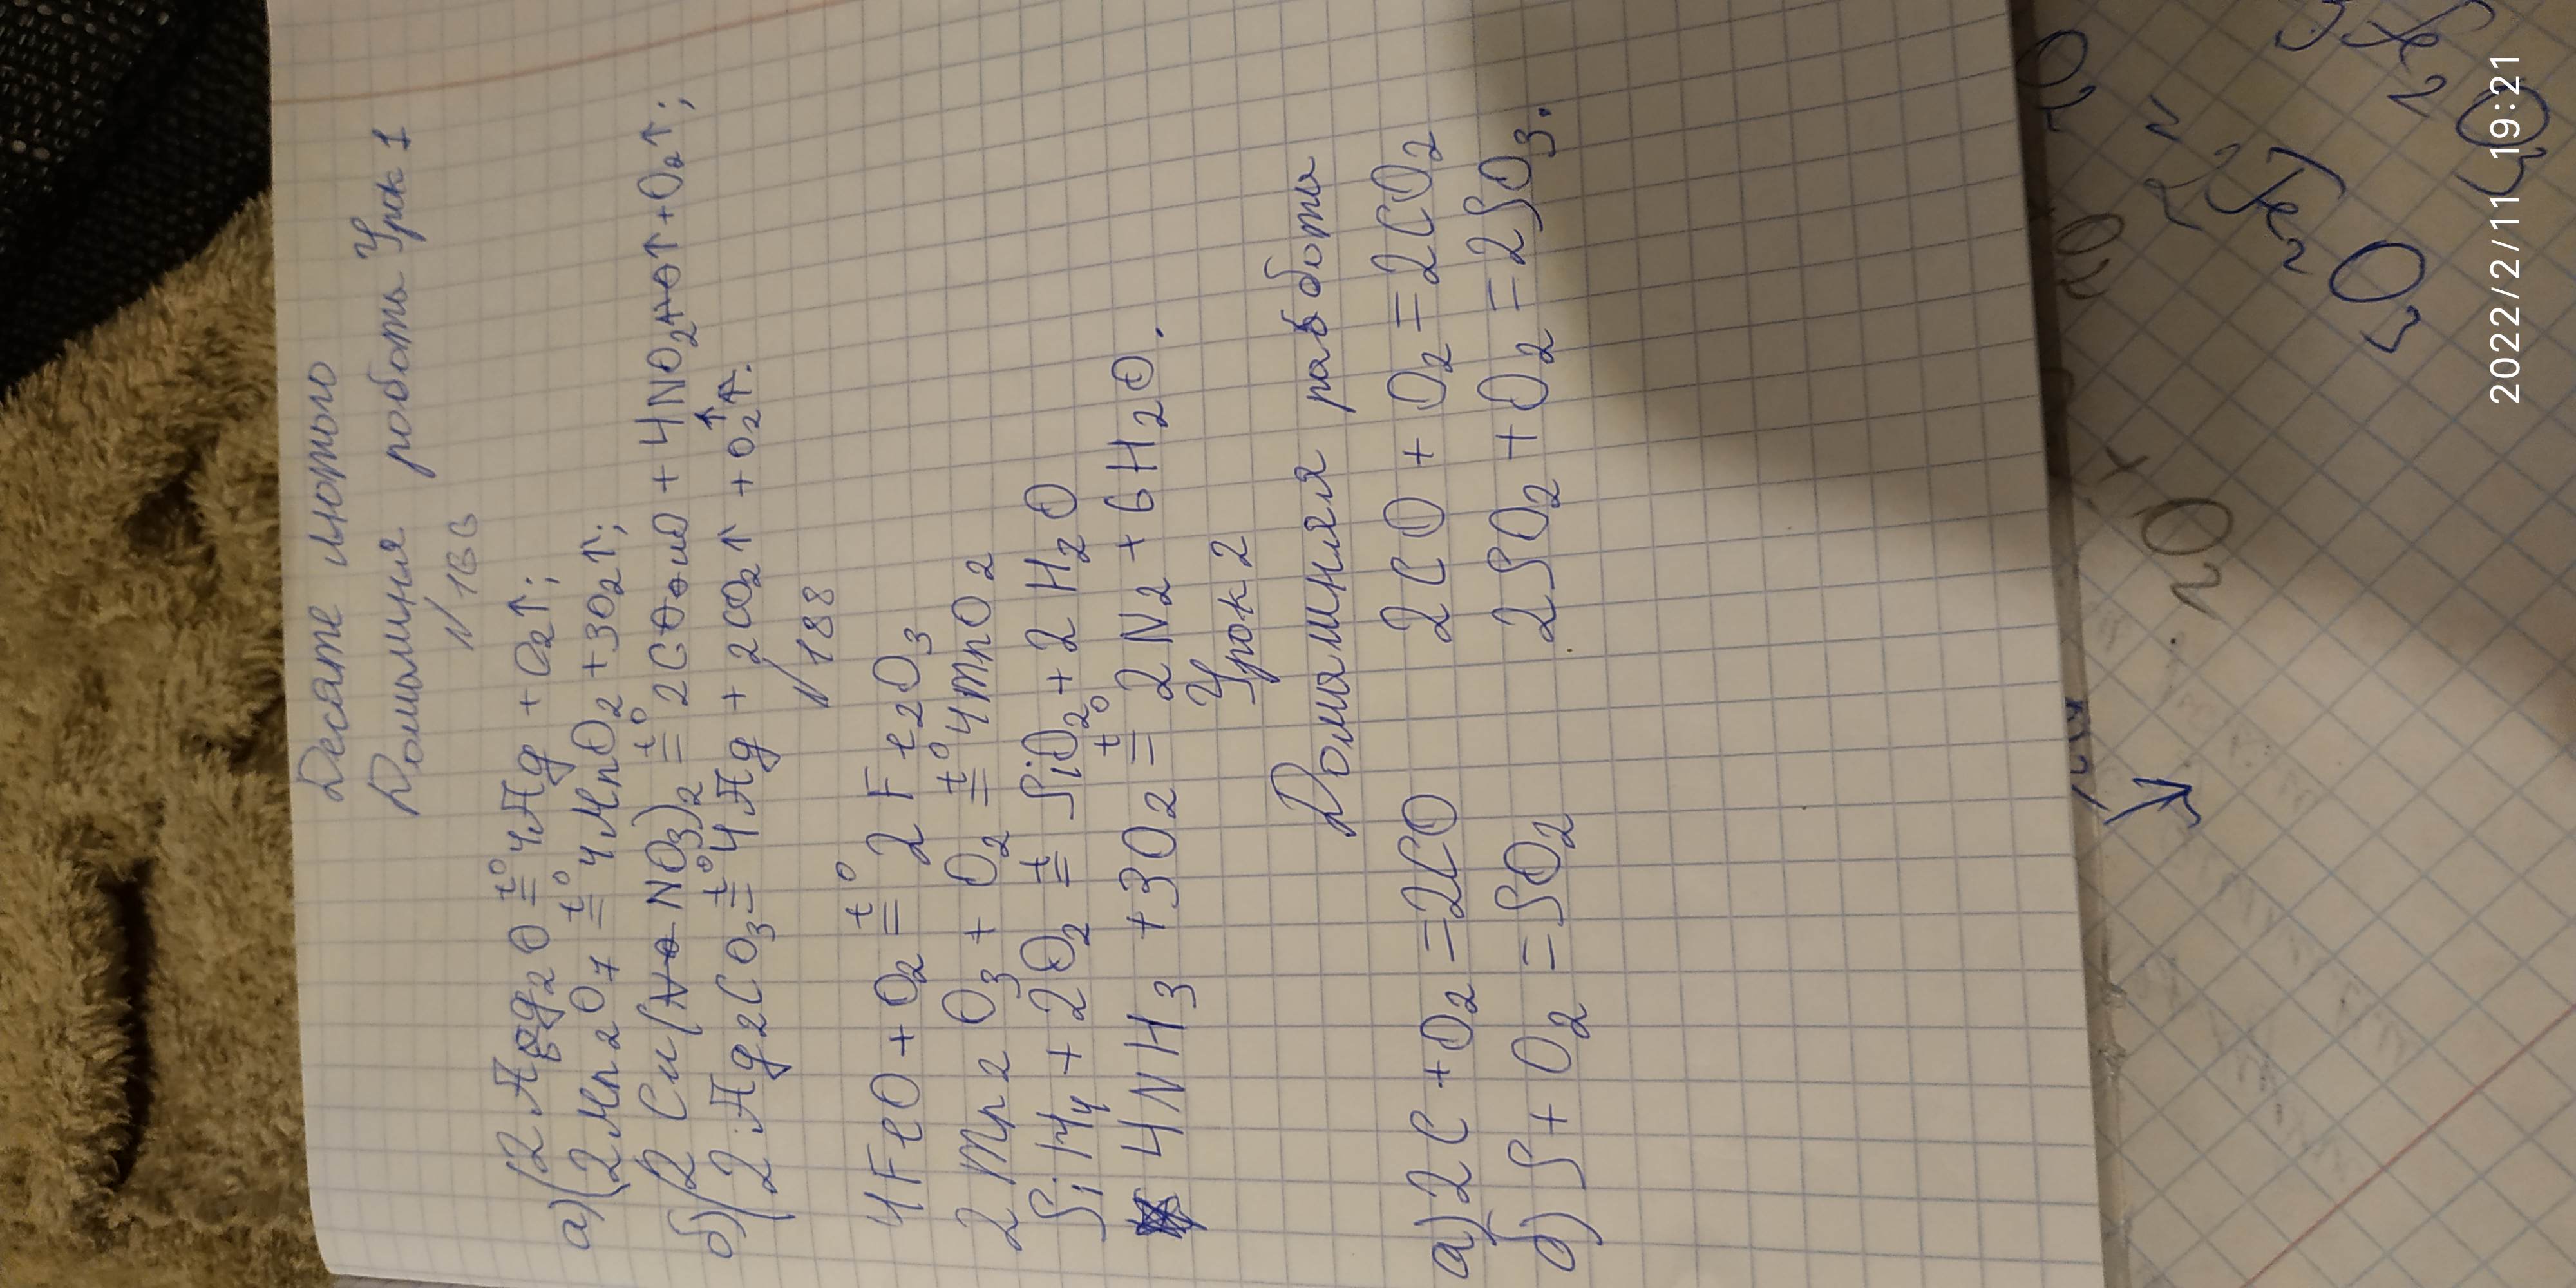 Десяте лютого
Домашня робота Урок 1
№ 186
а) 2Ag₂O =t° 4Ag + O₂↑;
2Mn₂O₇ =t° 4MnO₂ + 3O₂↑;
б) 2Cu(NO₃)₂ =t° 2CuO + 4NO₂↑ + O₂↑;
2Ag₂CO₃ =t° 4Ag + 2CO₂↑ + O₂↑.
№ 188
4FeO + O₂ =t° 2Fe₂O₃
2Mn₂O₃ + O₂ =t° 4MnO₂
SiH₄ + 2O₂ =t SiO₂ + 2H₂O
4NH₃ + 3O₂ =t° 2N₂ + 6H₂O.
Урок 2
Домашняя работа
а) 2C + O₂ = 2CO 2CO + O₂ = 2CO₂
б) S + O₂ = SO₂ 2SO₂ + O₂ = 2SO₃.
2Fe₂O₃
2022/2/11 19:21